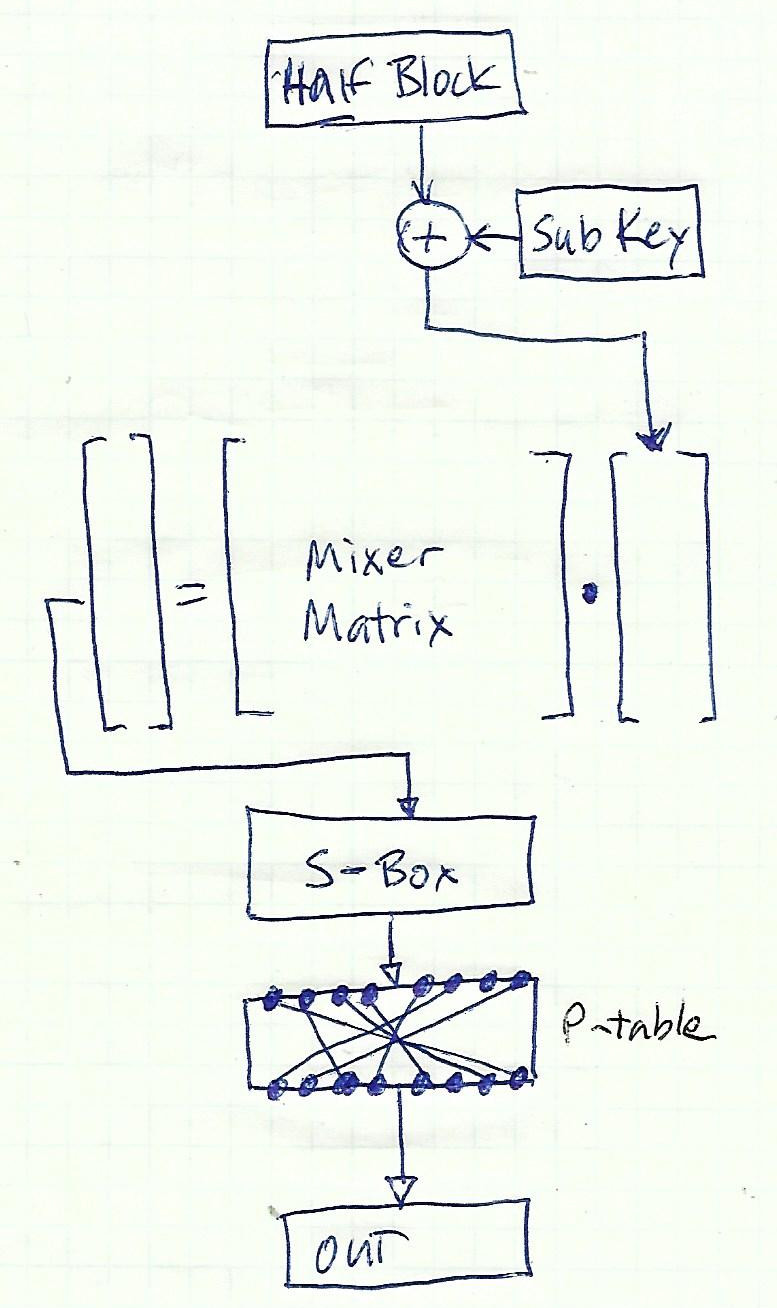 Half Block
+
Sub Key
=
Mixer
Matrix
S-Box
P-table
OUT